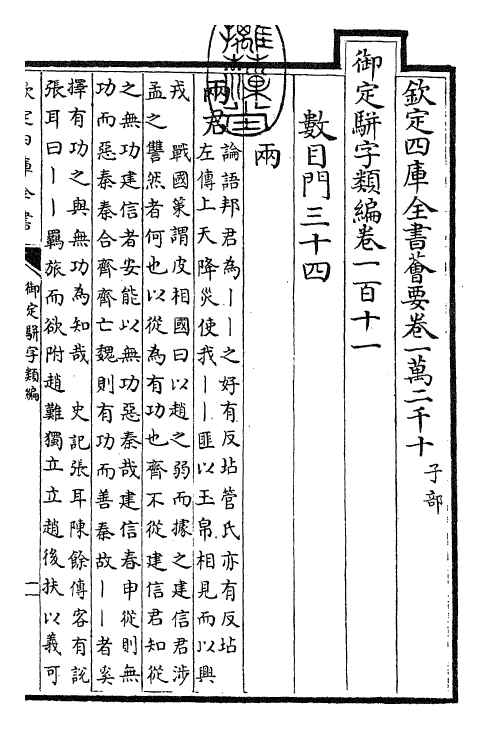 欽定四庫全書薈要卷一萬二千十 子部
御定駢字類編卷一百十一
數目門三十四
兩
兩君
論語邦君為丨丨之好有反坫管氏亦有反坫
左傳上天降災使我丨丨匪以玉帛相見而以興
戎 戰國策謂皮相國曰以趙之弱而據之建信君涉
孟之讐然者何也以從為有功也齊不從建信君知從
之無功建信者安能以無功惡秦哉建信春申從則無
功而惡秦秦合齊齊亡魏則有功而善秦故丨丨者奚
擇有功之與無功為知哉 史記張耳陳餘傳客有說
張耳曰丨丨羇旅而欲附趙難獨立立趙後扶以義可
欽定四庫全書
御定駢字類編
一